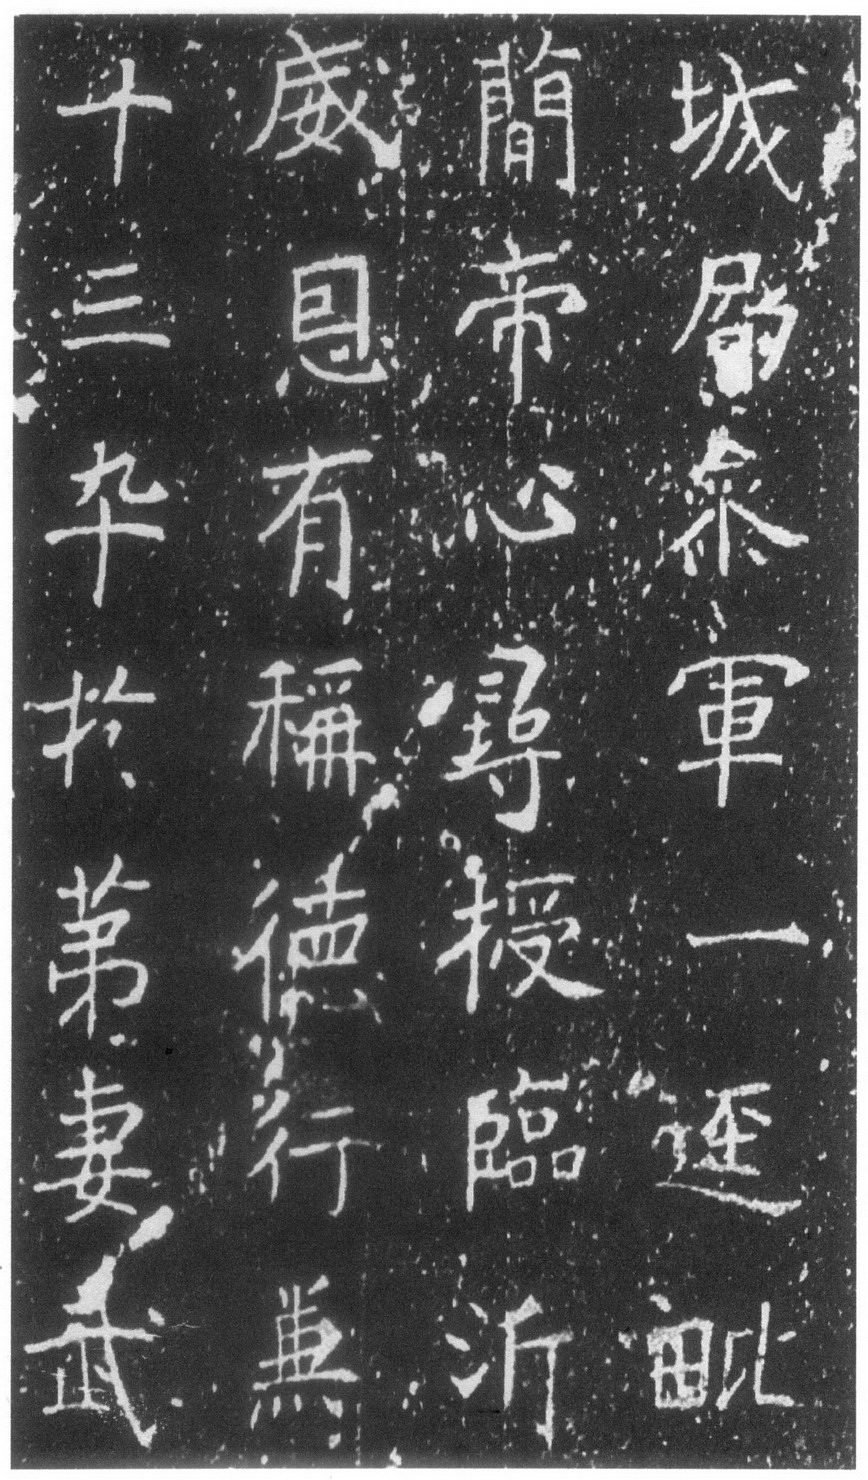 城局叅軍一逕毗
簡帝心尋授臨沂
威恩有稱德行兼
十三卆於第妻武